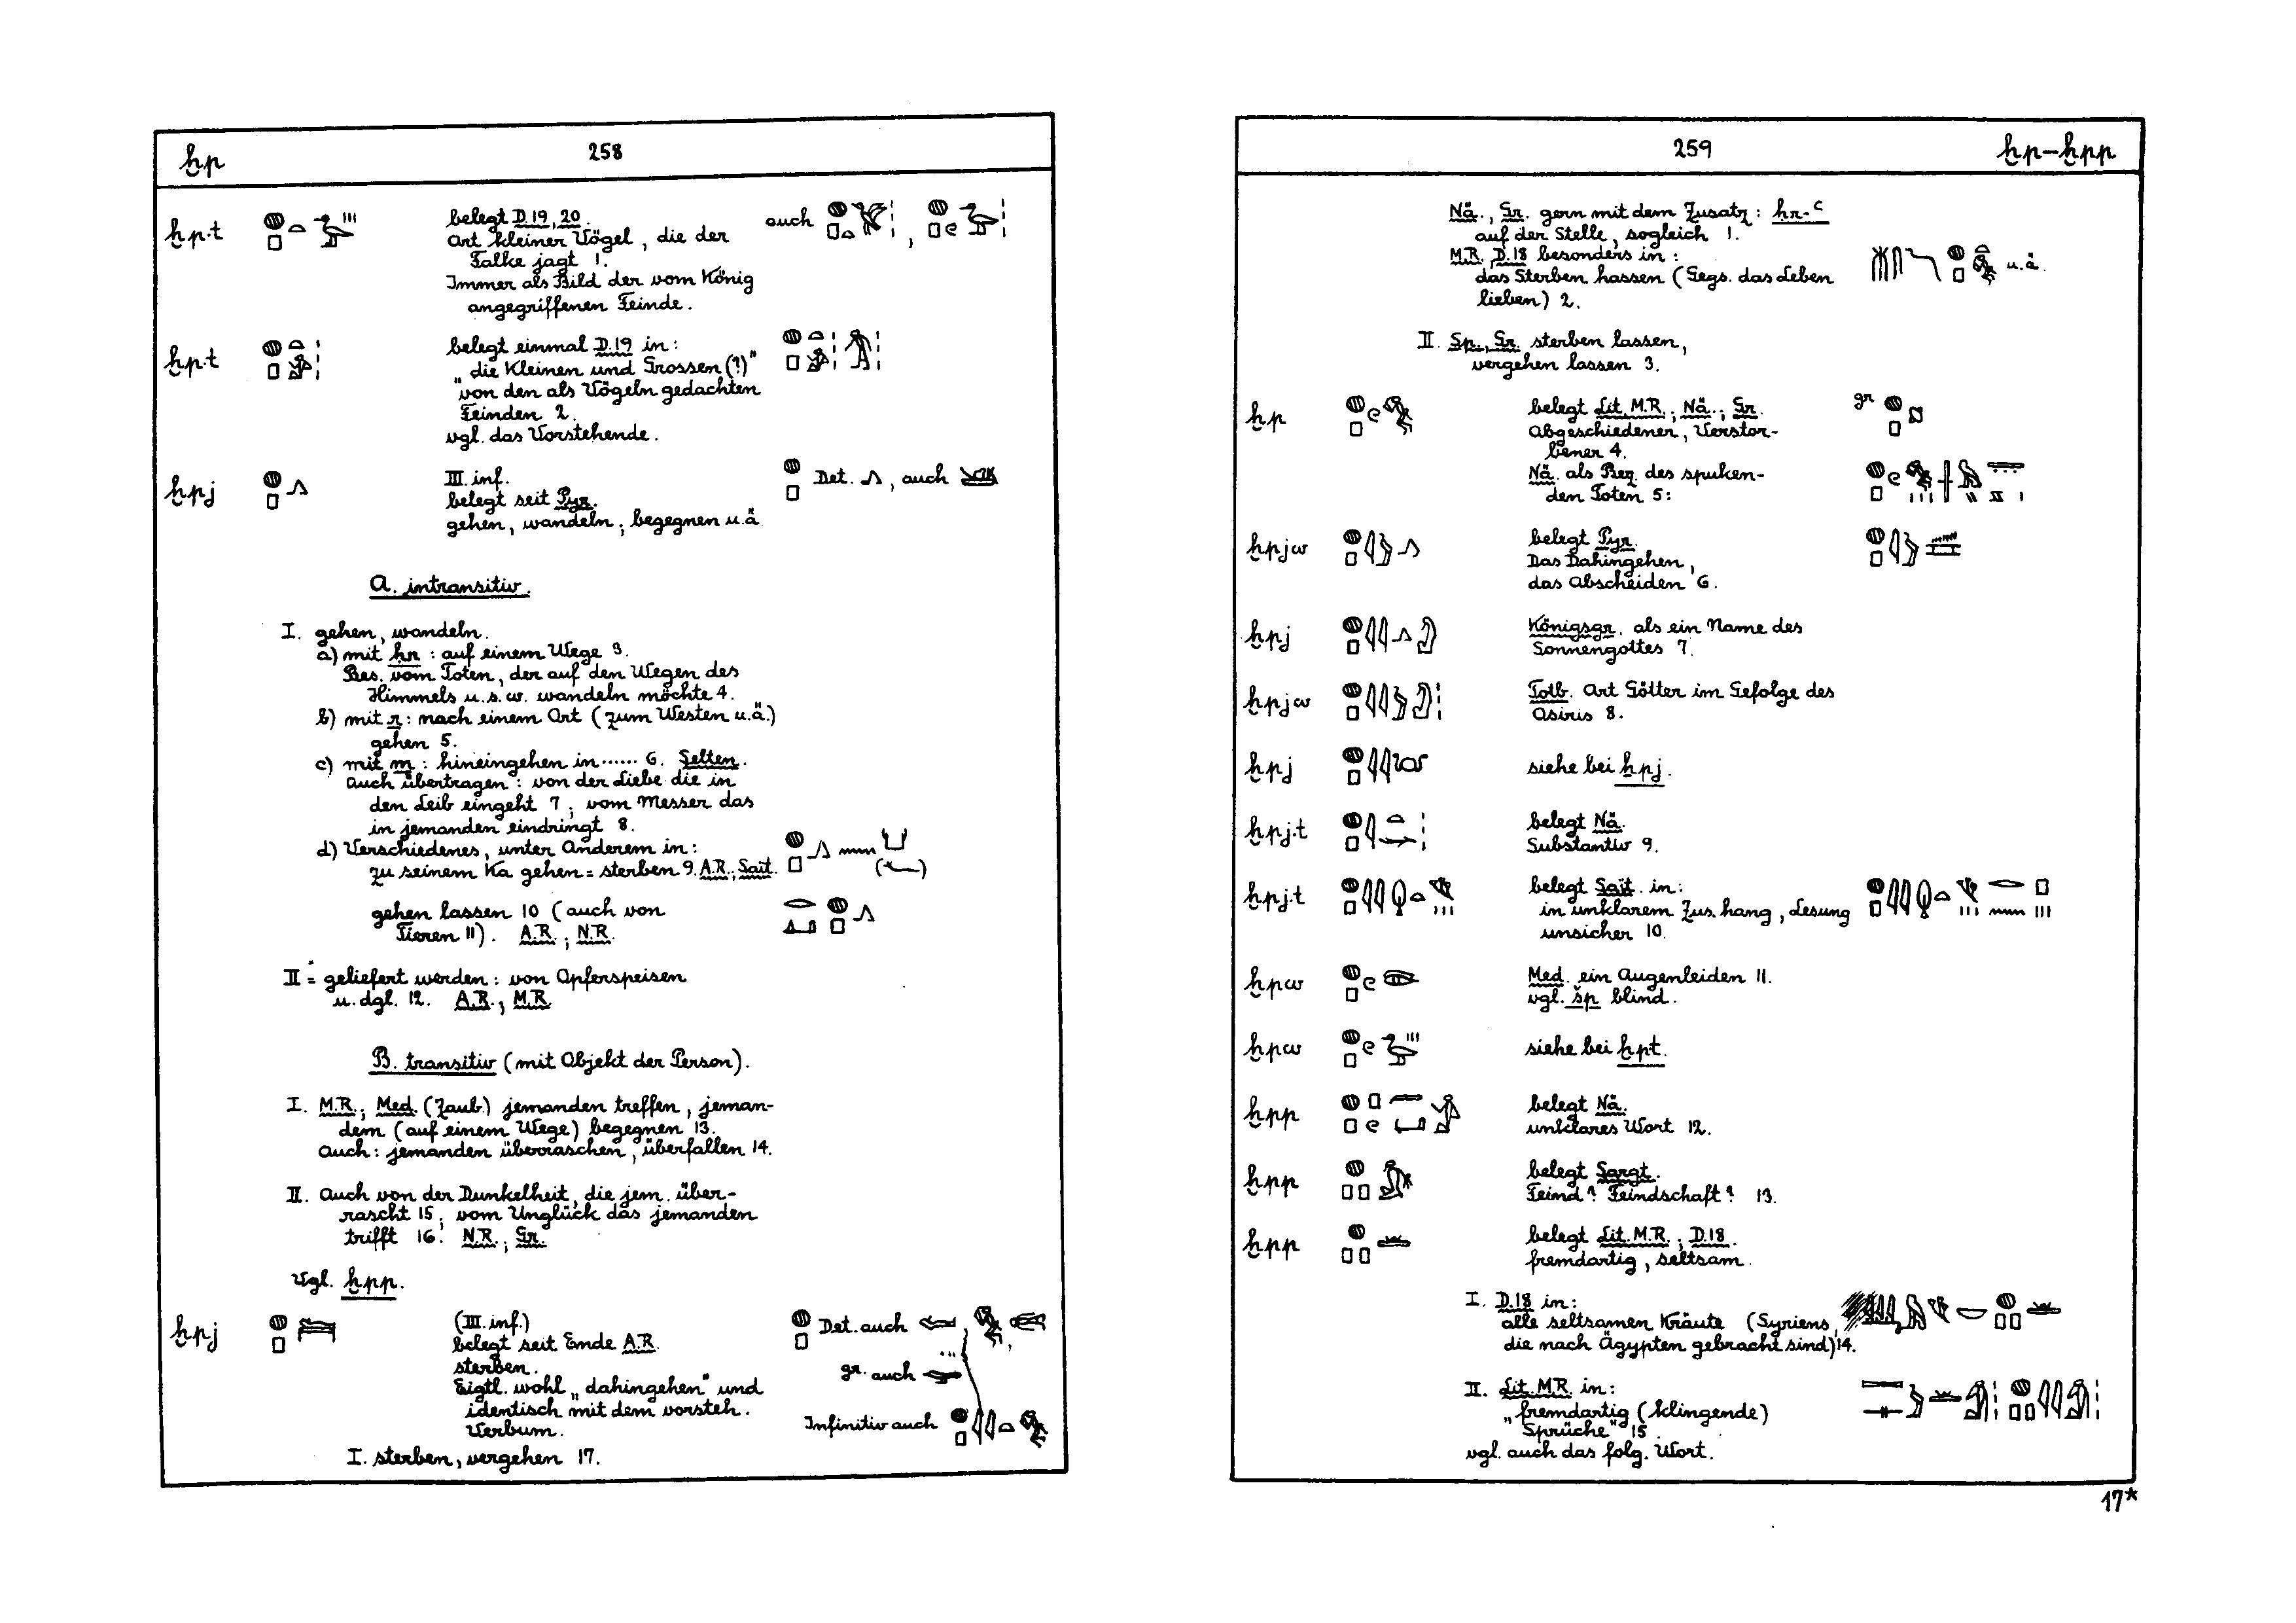 ḫp
258
ḫp.t belegt D.19, 20. auch ,
Art kleiner Vögel, die der
Falke jagt 1.
Immer als Bild der vom König
angegriffenen Feinde.
ḫp.t belegt einmal D.19 in:
„die Kleinen und Grossen (?)"
von den als Vögeln gedachten
Feinden 2.
vgl. das Vorstehende.
ḫpj III. inf. Det. , auch
belegt seit Pyr.
gehen, wandeln; begegnen u.ä.
A. intransitiv.
I. gehen, wandeln.
a) mit ḥr: auf einem Wege 3.
Bes. vom Toten, der auf den Wegen des
Himmels u.s.w. wandeln möchte 4.
b) mit r: nach einem Ort (zum Westen u.ä.)
gehen 5.
c) mit m: hineingehen in...... 6. Selten.
Auch übertragen: von der Liebe die in
den Leib eingeht 7; vom Messer das
in jemanden eindringt 8.
d) Verschiedenes, unter Anderem in:
zu seinem Ka gehen = sterben 9. A.R.; Sait.
gehen lassen 10 (auch von
Tieren 11). A.R.; N.R.
II = geliefert werden: von Opferspeisen
u. dgl. 12. A.R., M.R.
B. transitiv (mit Objekt der Person).
I. M.R.; Med. (Zaub.) jemanden treffen, jeman-
dem (auf einem Wege) begegnen 13.
Auch: jemanden überraschen, überfallen 14.
II. Auch von der Dunkelheit, die jem. über-
rascht 15; vom Unglück das jemanden
trifft 16. N.R.; Gr.
Vgl. ḫpp.
ḫpj (III. inf.) Det. auch , ,
belegt seit Ende A.R.
sterben. gr. auch
Eigtl. wohl „dahingehen" und
identisch mit dem vorsteh. Infinitiv auch
Verbum.
I. sterben, vergehen 17.
259
ḫp–ḫpp
Nä., Gr. gern mit dem Zusatz: ḥr-ʿ
auf der Stelle, sogleich 1.
M.R., D.18 besonders in:
das Sterben hassen (Gegs. das Leben u.ä.
lieben) 2.
II. Sp., Gr. sterben lassen,
vergehen lassen 3.
ḫp belegt Lit. M.R.; Nä.; Gr. gr
Abgeschiedener, Verstor-
bener 4.
Nä. als Bez. des spuken-
den Toten 5:
ḫpjw belegt Pyr.
Das Dahingehen,
das Abscheiden 6.
ḫpj Königsgr. als ein Name des
Sonnengottes 7.
ḫpjw Totb. Art Götter im Gefolge des
Osiris 8.
ḫpj siehe bei ḥpj.
ḫpj.t belegt Nä.
Substantiv 9.
ḫpj.t belegt Saït. in:
in unklarem Zus.hang, Lesung
unsicher 10.
ḫpw Med. ein Augenleiden 11.
vgl. šp blind.
ḫpw siehe bei ḫpt.
ḫpp belegt Nä.
unklares Wort 12.
ḫpp belegt Sargt.
Feind? Feindschaft? 13.
ḫpp belegt Lit. M.R.; D.18.
fremdartig, seltsam.
I. D.18 in:
alle seltsamen Kräute (Syriens,
die nach Ägypten gebracht sind) 14.
II. Lit. MR. in:
„fremdartig (klingende)
Sprüche" 15
vgl. auch das folg. Wort.
17*